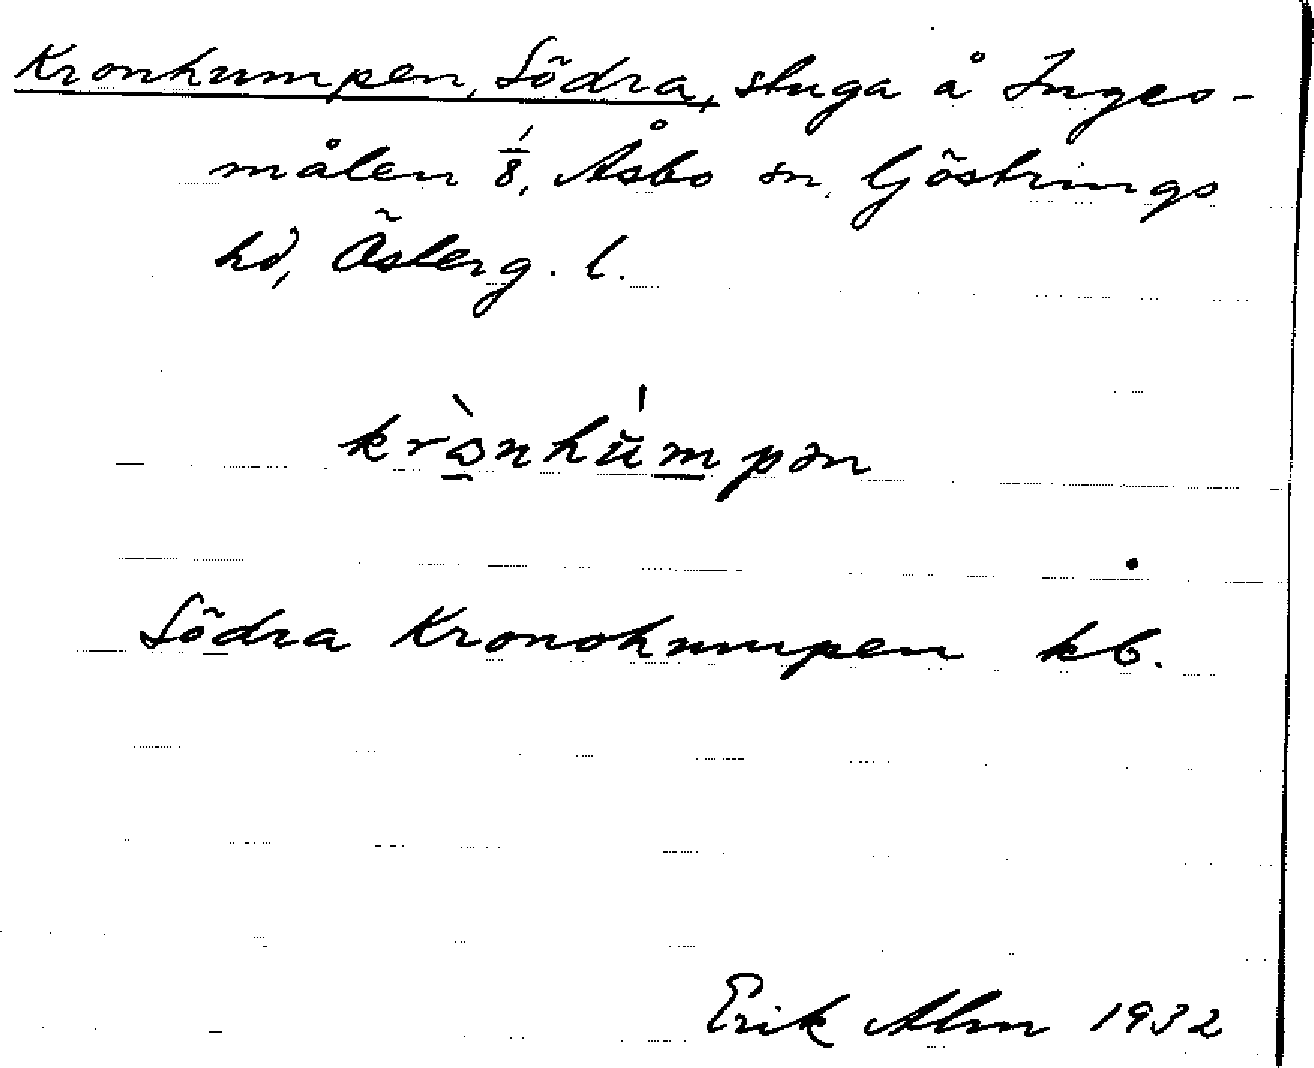 Kronhumpen, Södra, stuga å Inges-
målen 1/8, Åsbo sn, Göstrings
hd, Österg. l.
krὰnhumpən
Södra Kronohumpen kb.
Erik Alm 1932